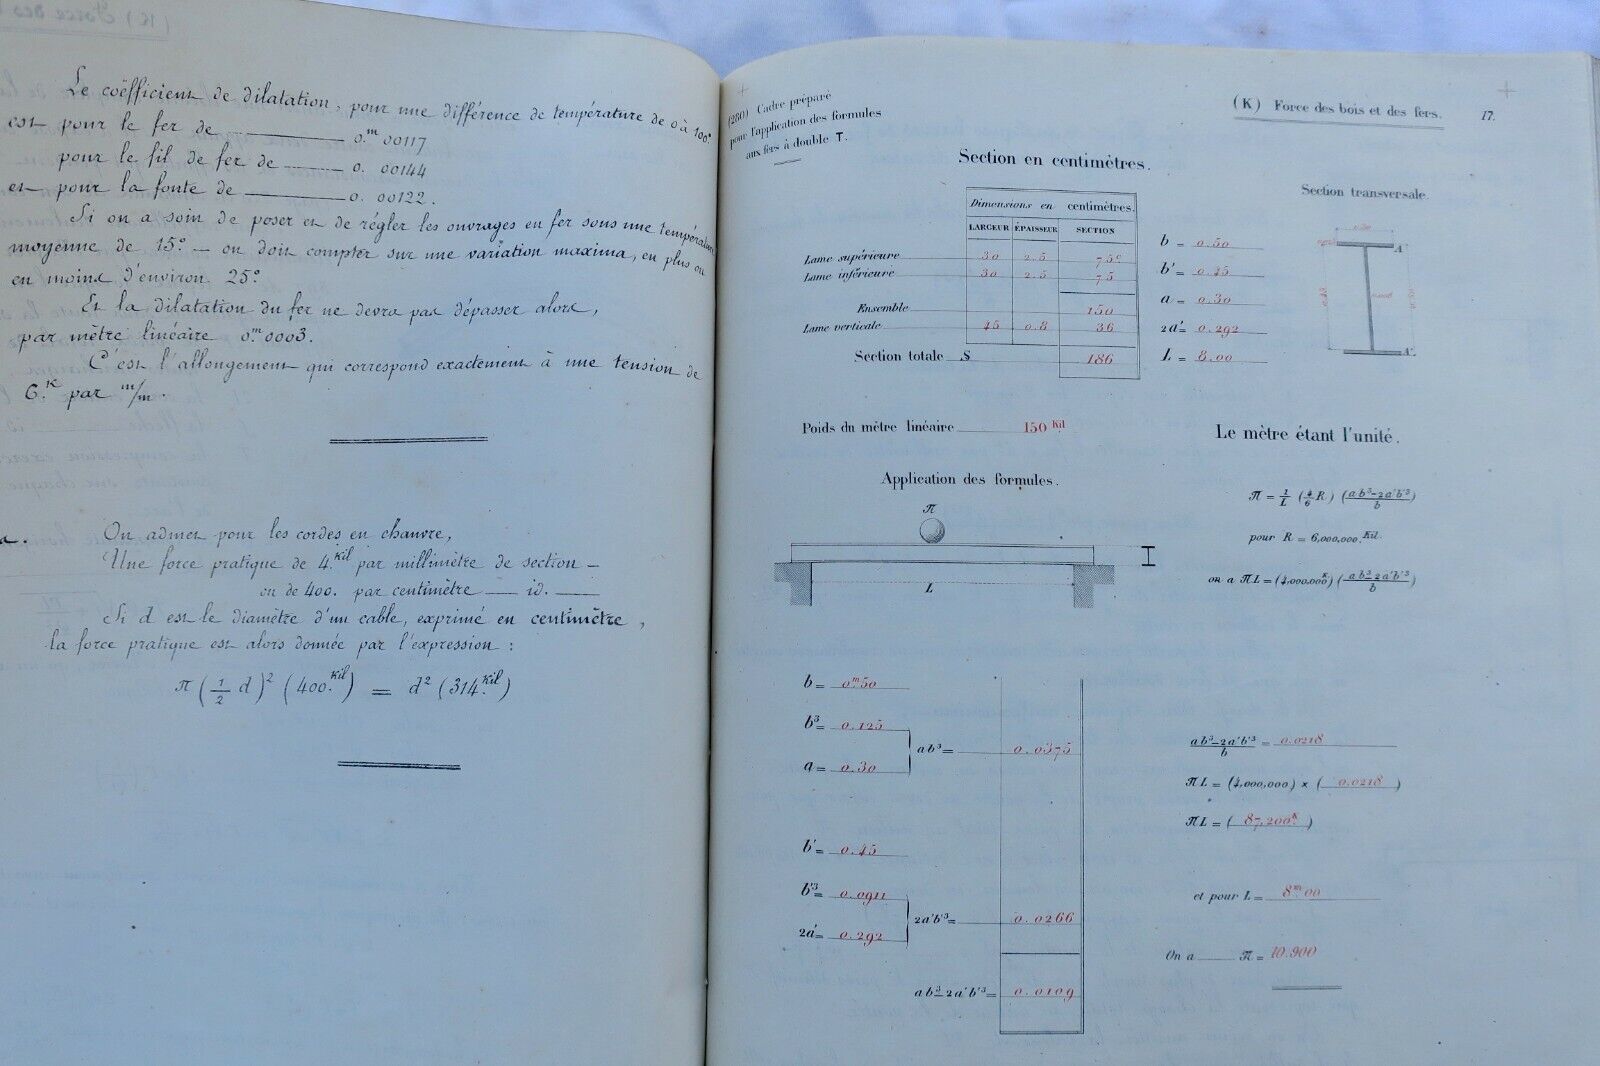 Le coëfficient de dilatation, pour une différence de température de 0 à 100°
est pour le fer de 0.m 00117
pour le fil de fer de 0. 00144
et pour la fonte de 0. 00122.
Si on a soin de poser et de régler les ouvrages en fer sous une température
moyenne de 15° — on doit compter sur une variation maxima, en plus ou
en moins d'environ 25°.
Et la dilatation du fer ne devra pas dépasser alors,
par mètre linéaire 0.m0003.
C'est l'allongement qui correspond exactement à une tension de
6.K par m/m.
On admet pour les cordes en chanvre,
Une force pratique de 4.Kil par millimètre de section —
ou de 400. par centimètre — id. —
Si d est le diamètre d'un cable, exprimé en centimètre,
la force pratique est alors donnée par l'expression :
π (1/2 d)² (400.Kil) = d² (314.Kil)
(260) Cadre préparé
pour l'application des formules
aux fers à double T.
(K) Force des bois et des fers. 17.
Section en centimètres.
Dimensions en centimètres.
LARGEUR ÉPAISSEUR SECTION
Lame supérieure 30 2.5 75c
Lame inférieure 30 2.5 75
Ensemble 150
Lame verticale 45 0.8 36
Section totale S 186
Poids du mètre linéaire 150 Kil
Section transversale
A
A'
b = 0.50
b' = 0.45
a = 0.30
2a' = 0.292
L = 8.00
Le mètre étant l'unité.
π = 1/L (4/6 R) (ab³-2a'b'³/b)
pour R = 6,000,000.Kil.
on a πL = (4,000,000K) (ab³-2a'b'³/b)
Application des formules.
π
L
b = 0m50
b³ = 0.125
a = 0.30
ab³ = 0.0375
b' = 0.45
b'³ = 0.0911
2a' = 0.292
2a'b'³ = 0.0266
ab³-2a'b'³ = 0.0109
ab³-2a'b'³/b = 0.0218
πL = (4,000,000) x (0.0218)
πL = (87,200K)
et pour L = 8m00
On a π = 10.900